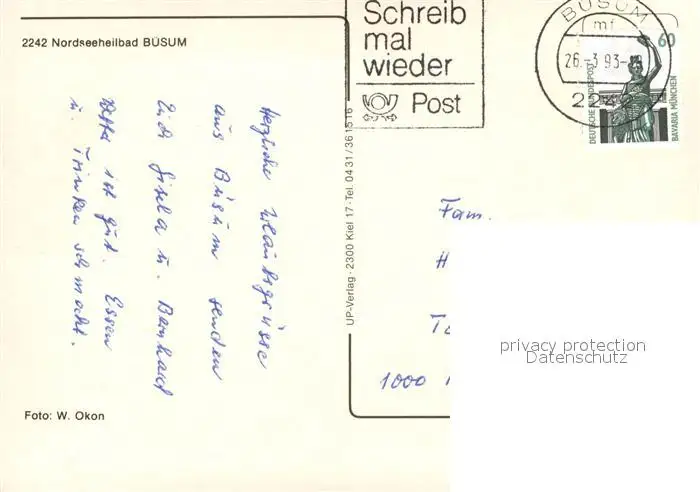 2242 Nordseeheilbad BÜSUM
Schreib
mal
wieder
Post
BÜSUM
mf
26.-3.93-
2242
60
DEUTSCHE BUNDESPOST
BAVARIA MÜNCHEN
Herzliche Urlaubsgrüsse
aus Büsum senden
Euch Gisela u. Bernhard
Wetter ist gut. Essen
u. Trinken schmeckt.
UP-Verlag · 2300 Kiel 17 · Tel. 04 31 / 36 15 16
Fam.
H
T
1000
privacy protection
Datenschutz
Foto: W. Okon